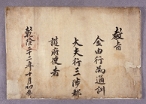 教旨
金由行為通訓
大夫行三涉都
護府使者
乾隆三十三年十月初